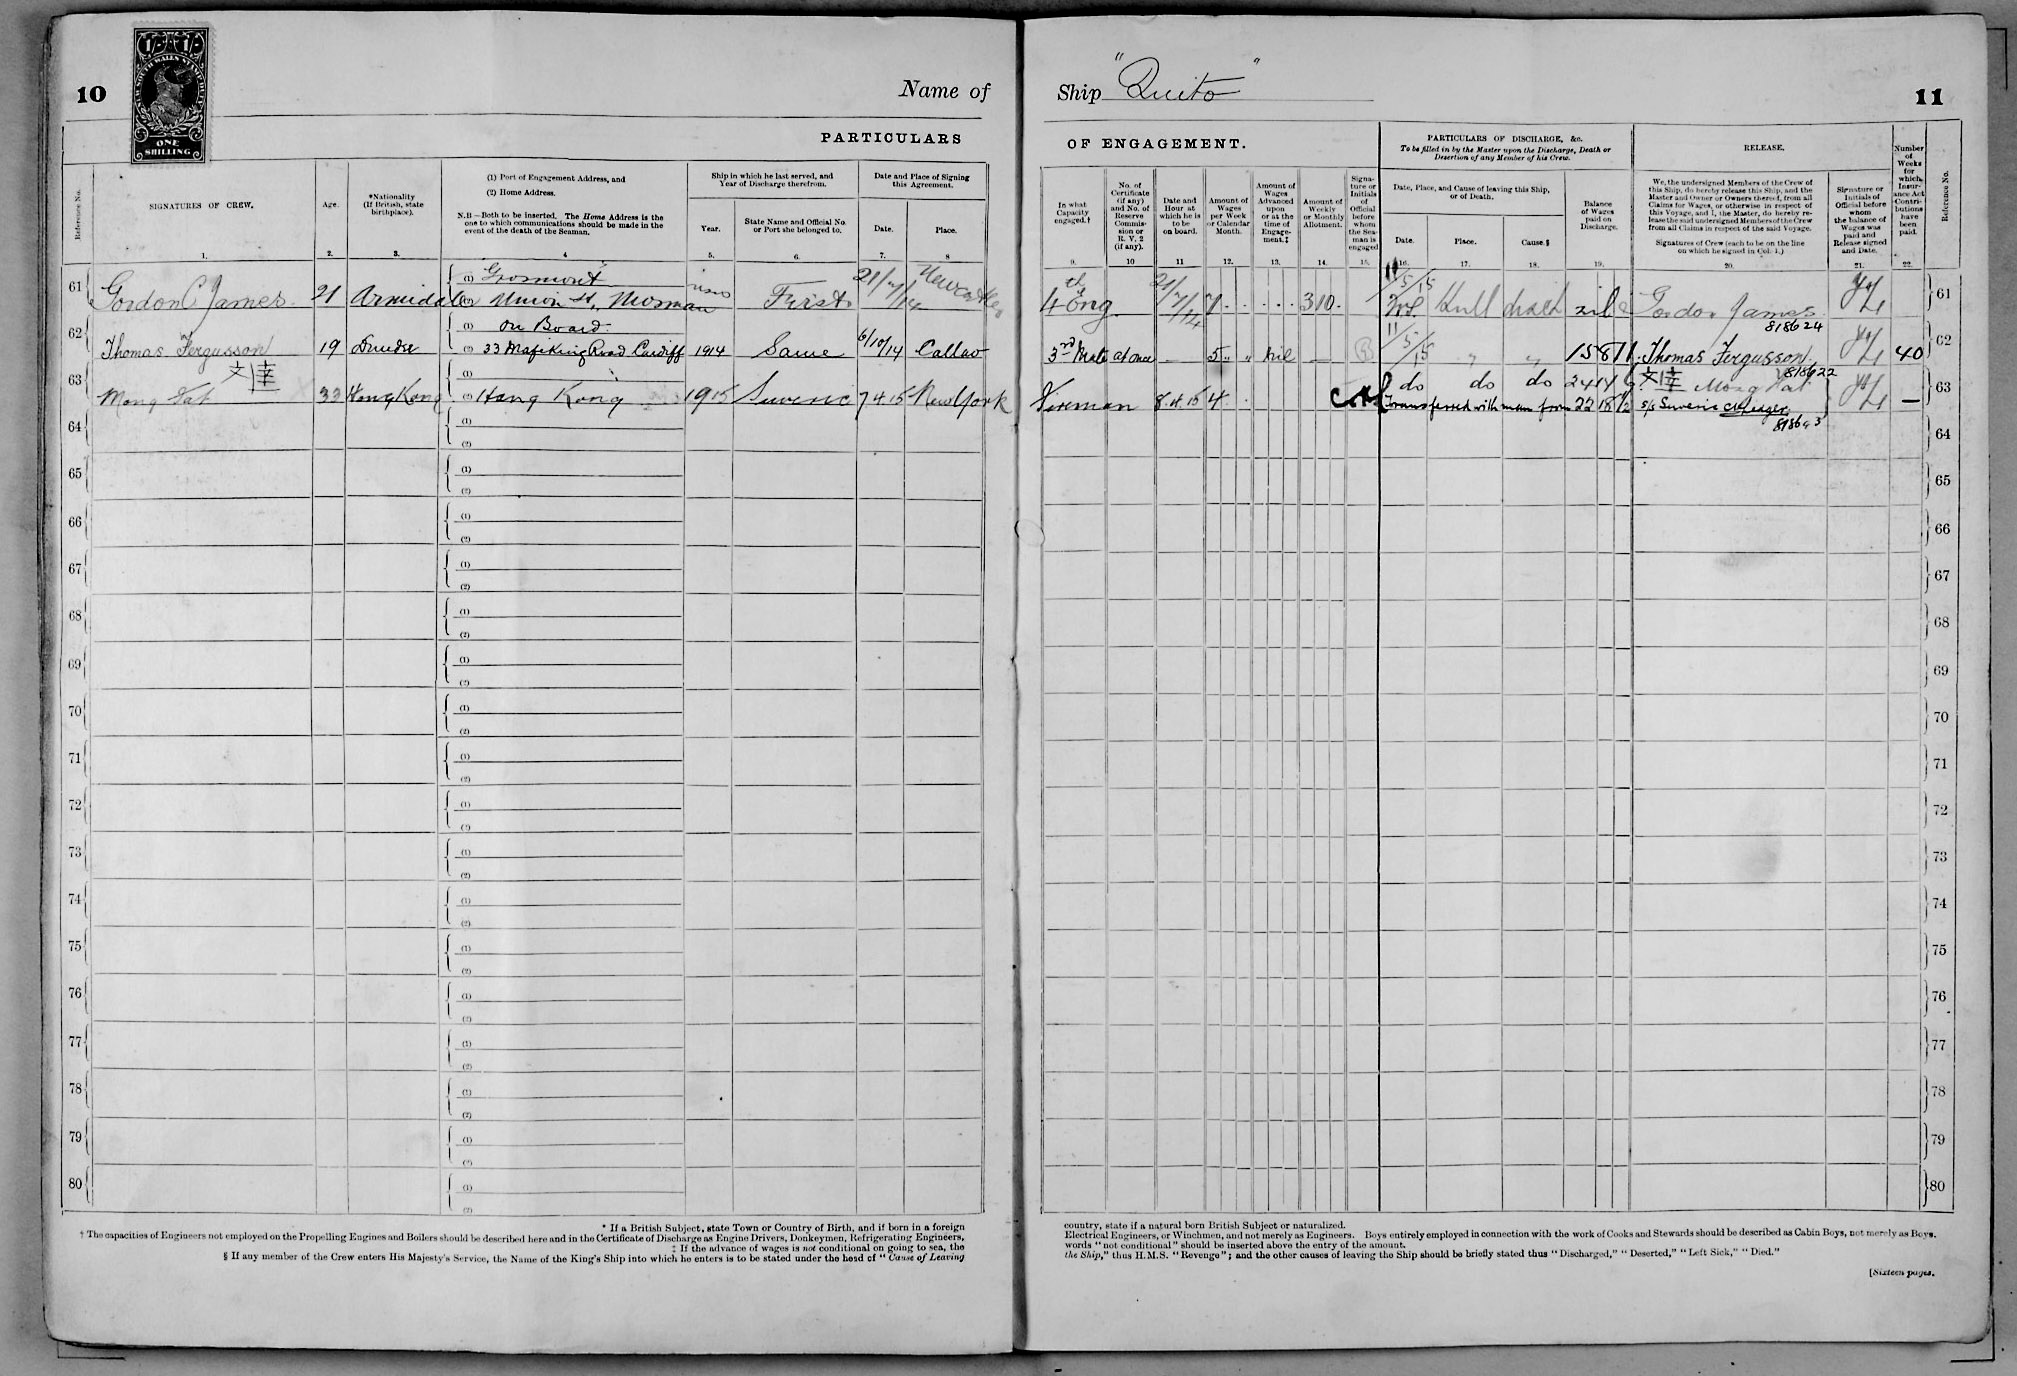 10
NEW SOUTH WALES STAMP DUTY
ONE
SHILLING
Name of
Ship "Quito"
11
PARTICULARS
OF ENGAGEMENT.
PARTICULARS OF DISCHARGE, &c.
To be filled in by the Master upon the Discharge, Death or
Desertion of any Member of his Crew.
RELEASE.
Number
of
Weeks
for
which
Insur-
ance Act
Contri-
butions
have
been
paid.
Reference No.
SIGNATURES OF CREW.
Age.
*Nationality
(If British, state
birthplace).
(1) Port of Engagement Address, and
(2) Home Address.
N.B—Both to be inserted. The Home Address is the
one to which communications should be made in the
event of the death of the Seaman.
Ship in which he last served, and
Year of Discharge therefrom.
Year.
State Name and Official No.
or Port she belonged to.
Date and Place of Signing
this Agreement.
Date.
Place.
In what
Capacity
engaged.†
No. of
Certificate
(if any)
and No. of
Reserve
Commis-
sion or
R. V. 2
(if any).
Date and
Hour at
which he is
to be
on board.
Amount of
Wages
per Week
or Calendar
Month.
Amount of
Wages
Advanced
upon
or at the
time of
Engage-
ment.‡
Amount of
Weekly
or Monthly
Allotment.
Signa-
ture or
Initials
of
Official
before
whom
the Sea-
man is
engaged
Date, Place, and Cause of leaving this Ship,
or of Death.
Date.
Place.
Cause.§
Balance
of Wages
paid on
Discharge.
We, the undersigned Members of the Crew of
this Ship, do hereby release this Ship, and the
Master and Owner or Owners thereof, from all
Claims for Wages, or otherwise in respect of
this Voyage, and I, the Master, do hereby re-
lease the said undersigned Members of the Crew
from all Claims in respect of the said Voyage.
Signatures of Crew (each to be on the line
on which he signed in Col. 1.)
Signature or
Initials of
Official before
whom
the balance of
Wages was
paid and
Release signed
and Date.
Reference No.
1. 2. 3. 4 5. 6. 7. 8
9. 10 11 12. 13. 14. 15. 16. 17. 18. 19. 20. 21. 22.
61 Gordon C James 21 Armidale (1) Grosmont
(2) Union St, Mosman First 21/7/14 Newcastle
4th Eng. 21/7/14 7 310 11/5/15 Hull disch nil Gordon James 61
818624
62 Thomas Fergusson 19 Dundee (1) On Board
(2) 33 Mafeking Road Cardiff 1914 Same 6/10/14 Callao
3rd Mate at once — 5 " " nil — 11/5/15 " " 15 8 11 Thomas Fergusson 40 62
818622
63 Mong Fat 33 Hong Kong (1)
(2) Hong Kong 1915 Suveric 7 4 15 New York
Fireman 8.4.15 4 do do do 24 14 Mong Fat — 63
Transferred with man from 22 18 s/s Suveric
64 (1) (2) 64
65 (1) (2) 65
66 (1) (2) 66
67 (1) (2) 67
68 (1) (2) 68
69 (1) (2) 69
70 (1) (2) 70
71 (1) (2) 71
72 (1) (2) 72
73 (1) (2) 73
74 (1) (2) 74
75 (1) (2) 75
76 (1) (2) 76
77 (1) (2) 77
78 (1) (2) 78
79 (1) (2) 79
80 (1) (2) 80
* If a British Subject, state Town or Country of Birth, and if born in a foreign
† The capacities of Engineers not employed on the Propelling Engines and Boilers should be described here and in the Certificate of Discharge as Engine Drivers, Donkeymen, Refrigerating Engineers,
‡ If the advance of wages is not conditional on going to sea, the
§ If any member of the Crew enters His Majesty's Service, the Name of the King's Ship into which he enters is to be stated under the head of "Cause of Leaving
country, state if a natural born British Subject or naturalized.
Electrical Engineers, or Winchmen, and not merely as Engineers. Boys entirely employed in connection with the work of Cooks and Stewards should be described as Cabin Boys, not merely as Boys.
words "not conditional" should be inserted above the entry of the amount.
the Ship," thus H.M.S. "Revenge"; and the other causes of leaving the Ship should be briefly stated thus "Discharged," "Deserted," "Left Sick," "Died."
[Sixteen pages.